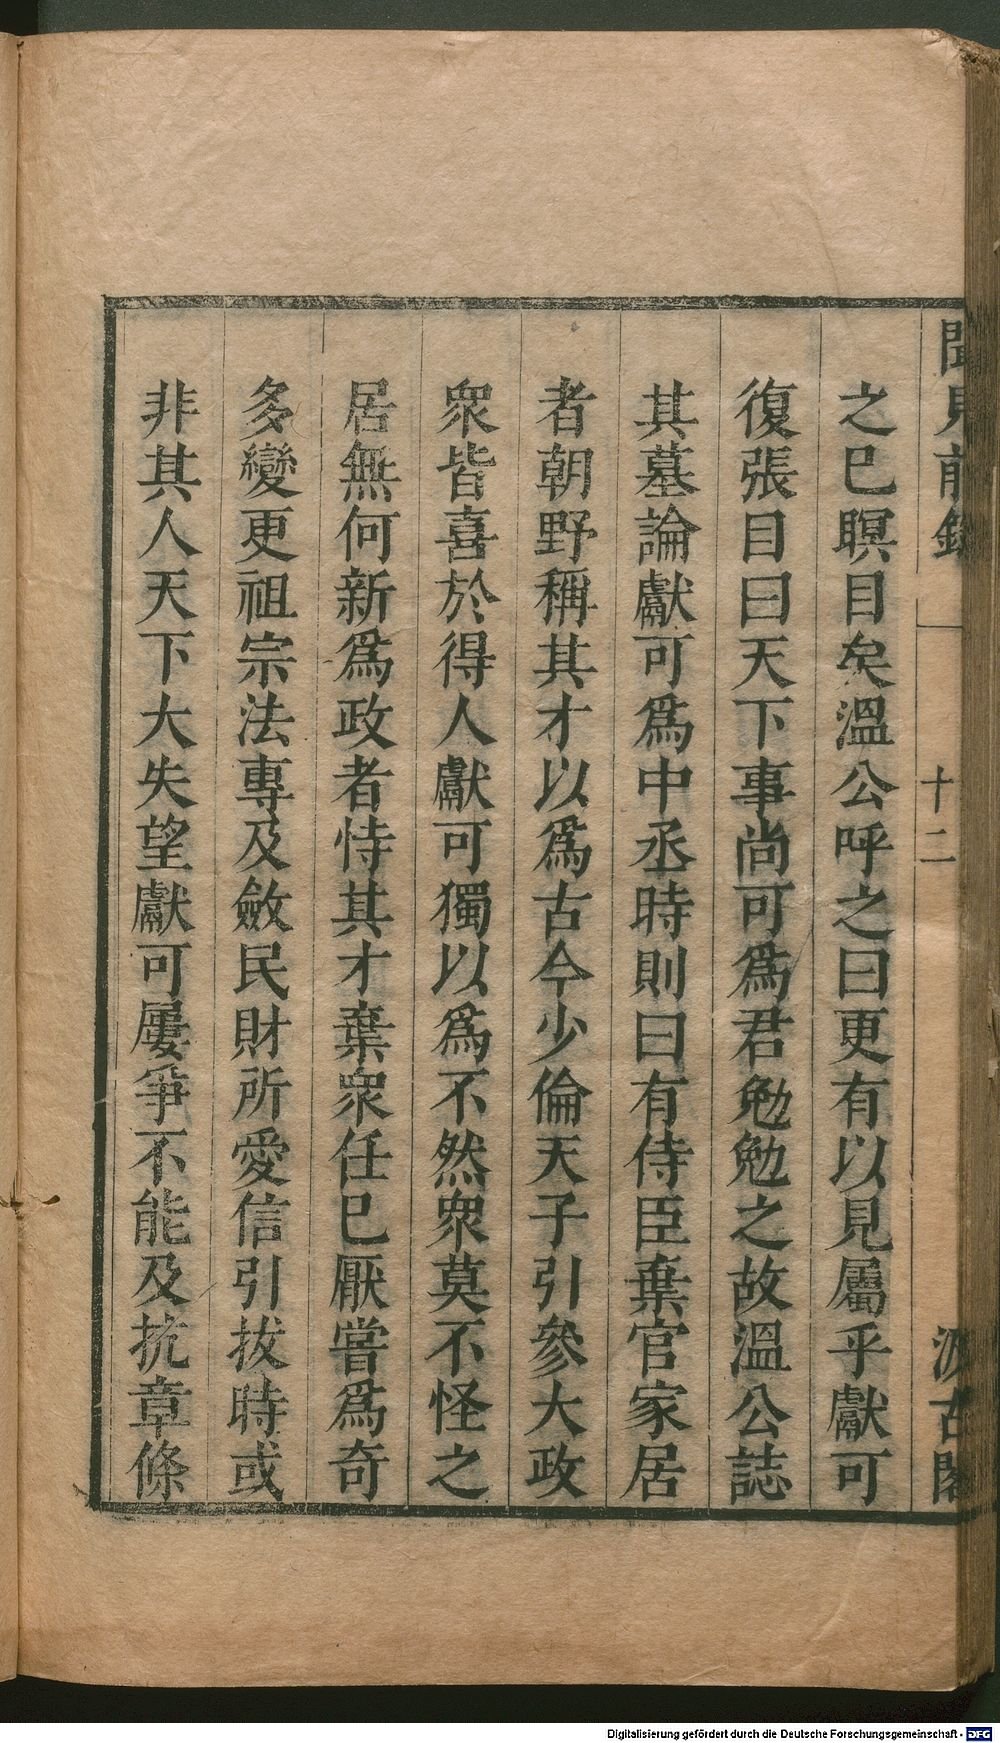 聞見前錄
十二
汲古閣
之巳瞑目矣溫公呼之曰更有以見屬乎獻可
復張目曰天下事尚可爲君勉勉之故溫公誌
其墓論獻可爲中丞時則曰有侍臣棄官家居
者朝野稱其才以爲古今少倫天子引參大政
衆皆喜於得人獻可獨以爲不然衆莫不怪之
居無何新爲政者恃其才棄衆任巳厭嘗爲奇
多變更祖宗法專及斂民財所愛信引拔時或
非其人天下大失望獻可屢爭不能及抗章條
Digitalisierung gefördert durch die Deutsche Forschungsgemeinschaft - DFG